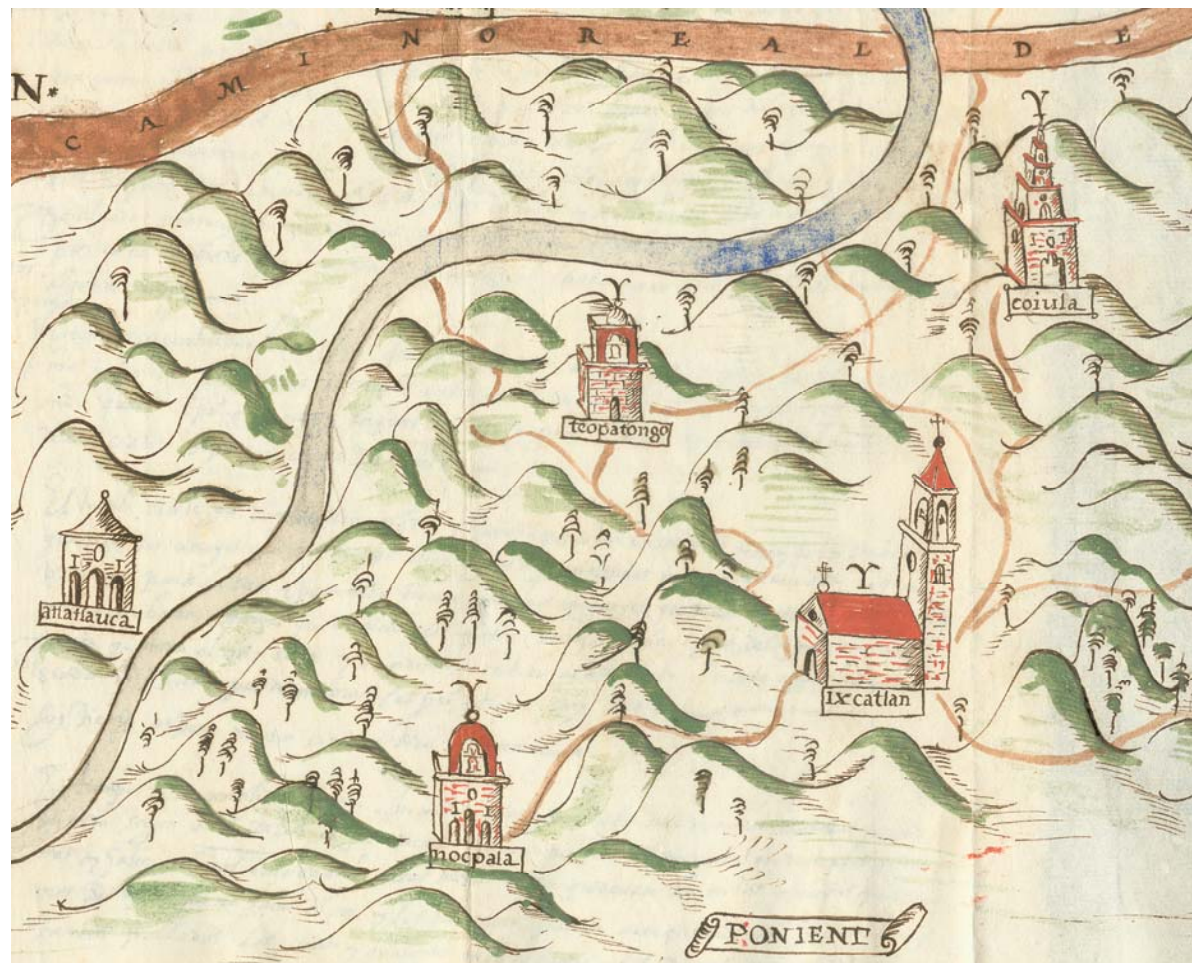 CAMINO REAL DE
N*
coiula
teopatongo
Ixcatlan
nocpala
PONIENT